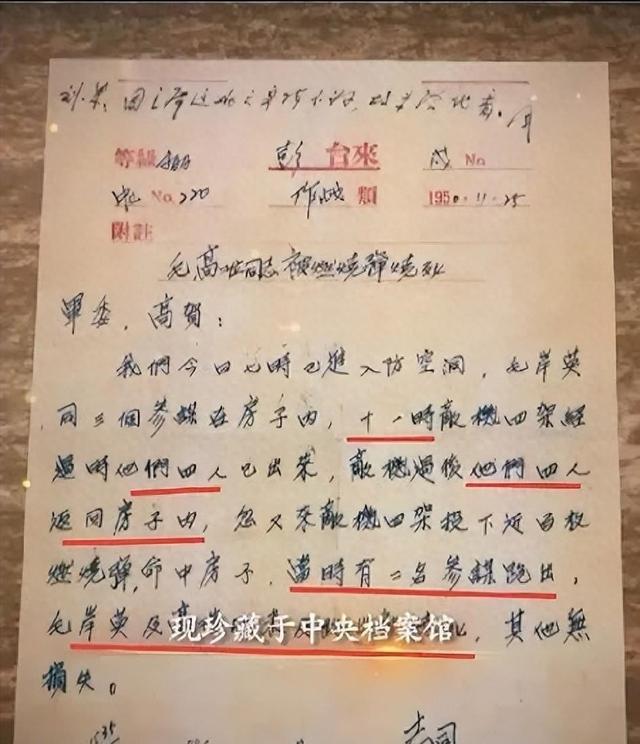 等級 彭 台來 戌 No
No. 220 作戰 類 1950.11.25
附註
毛高二同志被燃燒彈燒死
軍委，高賀：
我們今日七時已進入防空洞，毛岸英
同三個參謀在房子內，十一時敵機四架經
過時他們四人已出來，敵機過後他們四人
返回房子內，忽又來敵機四架投下近百枚
燃燒彈，命中房子，當時有二名參謀跑出，
毛岸英及高
現珍藏于中央档案馆
，其他無
損失。